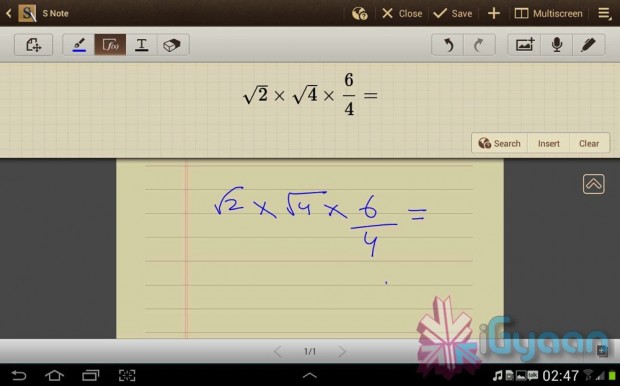 S Note Close Save Multiscreen
√2 × √4 × 6/4 =
Search Insert Clear
√2 × √4 × 6/4 =
iGyaan
1/1
02:47